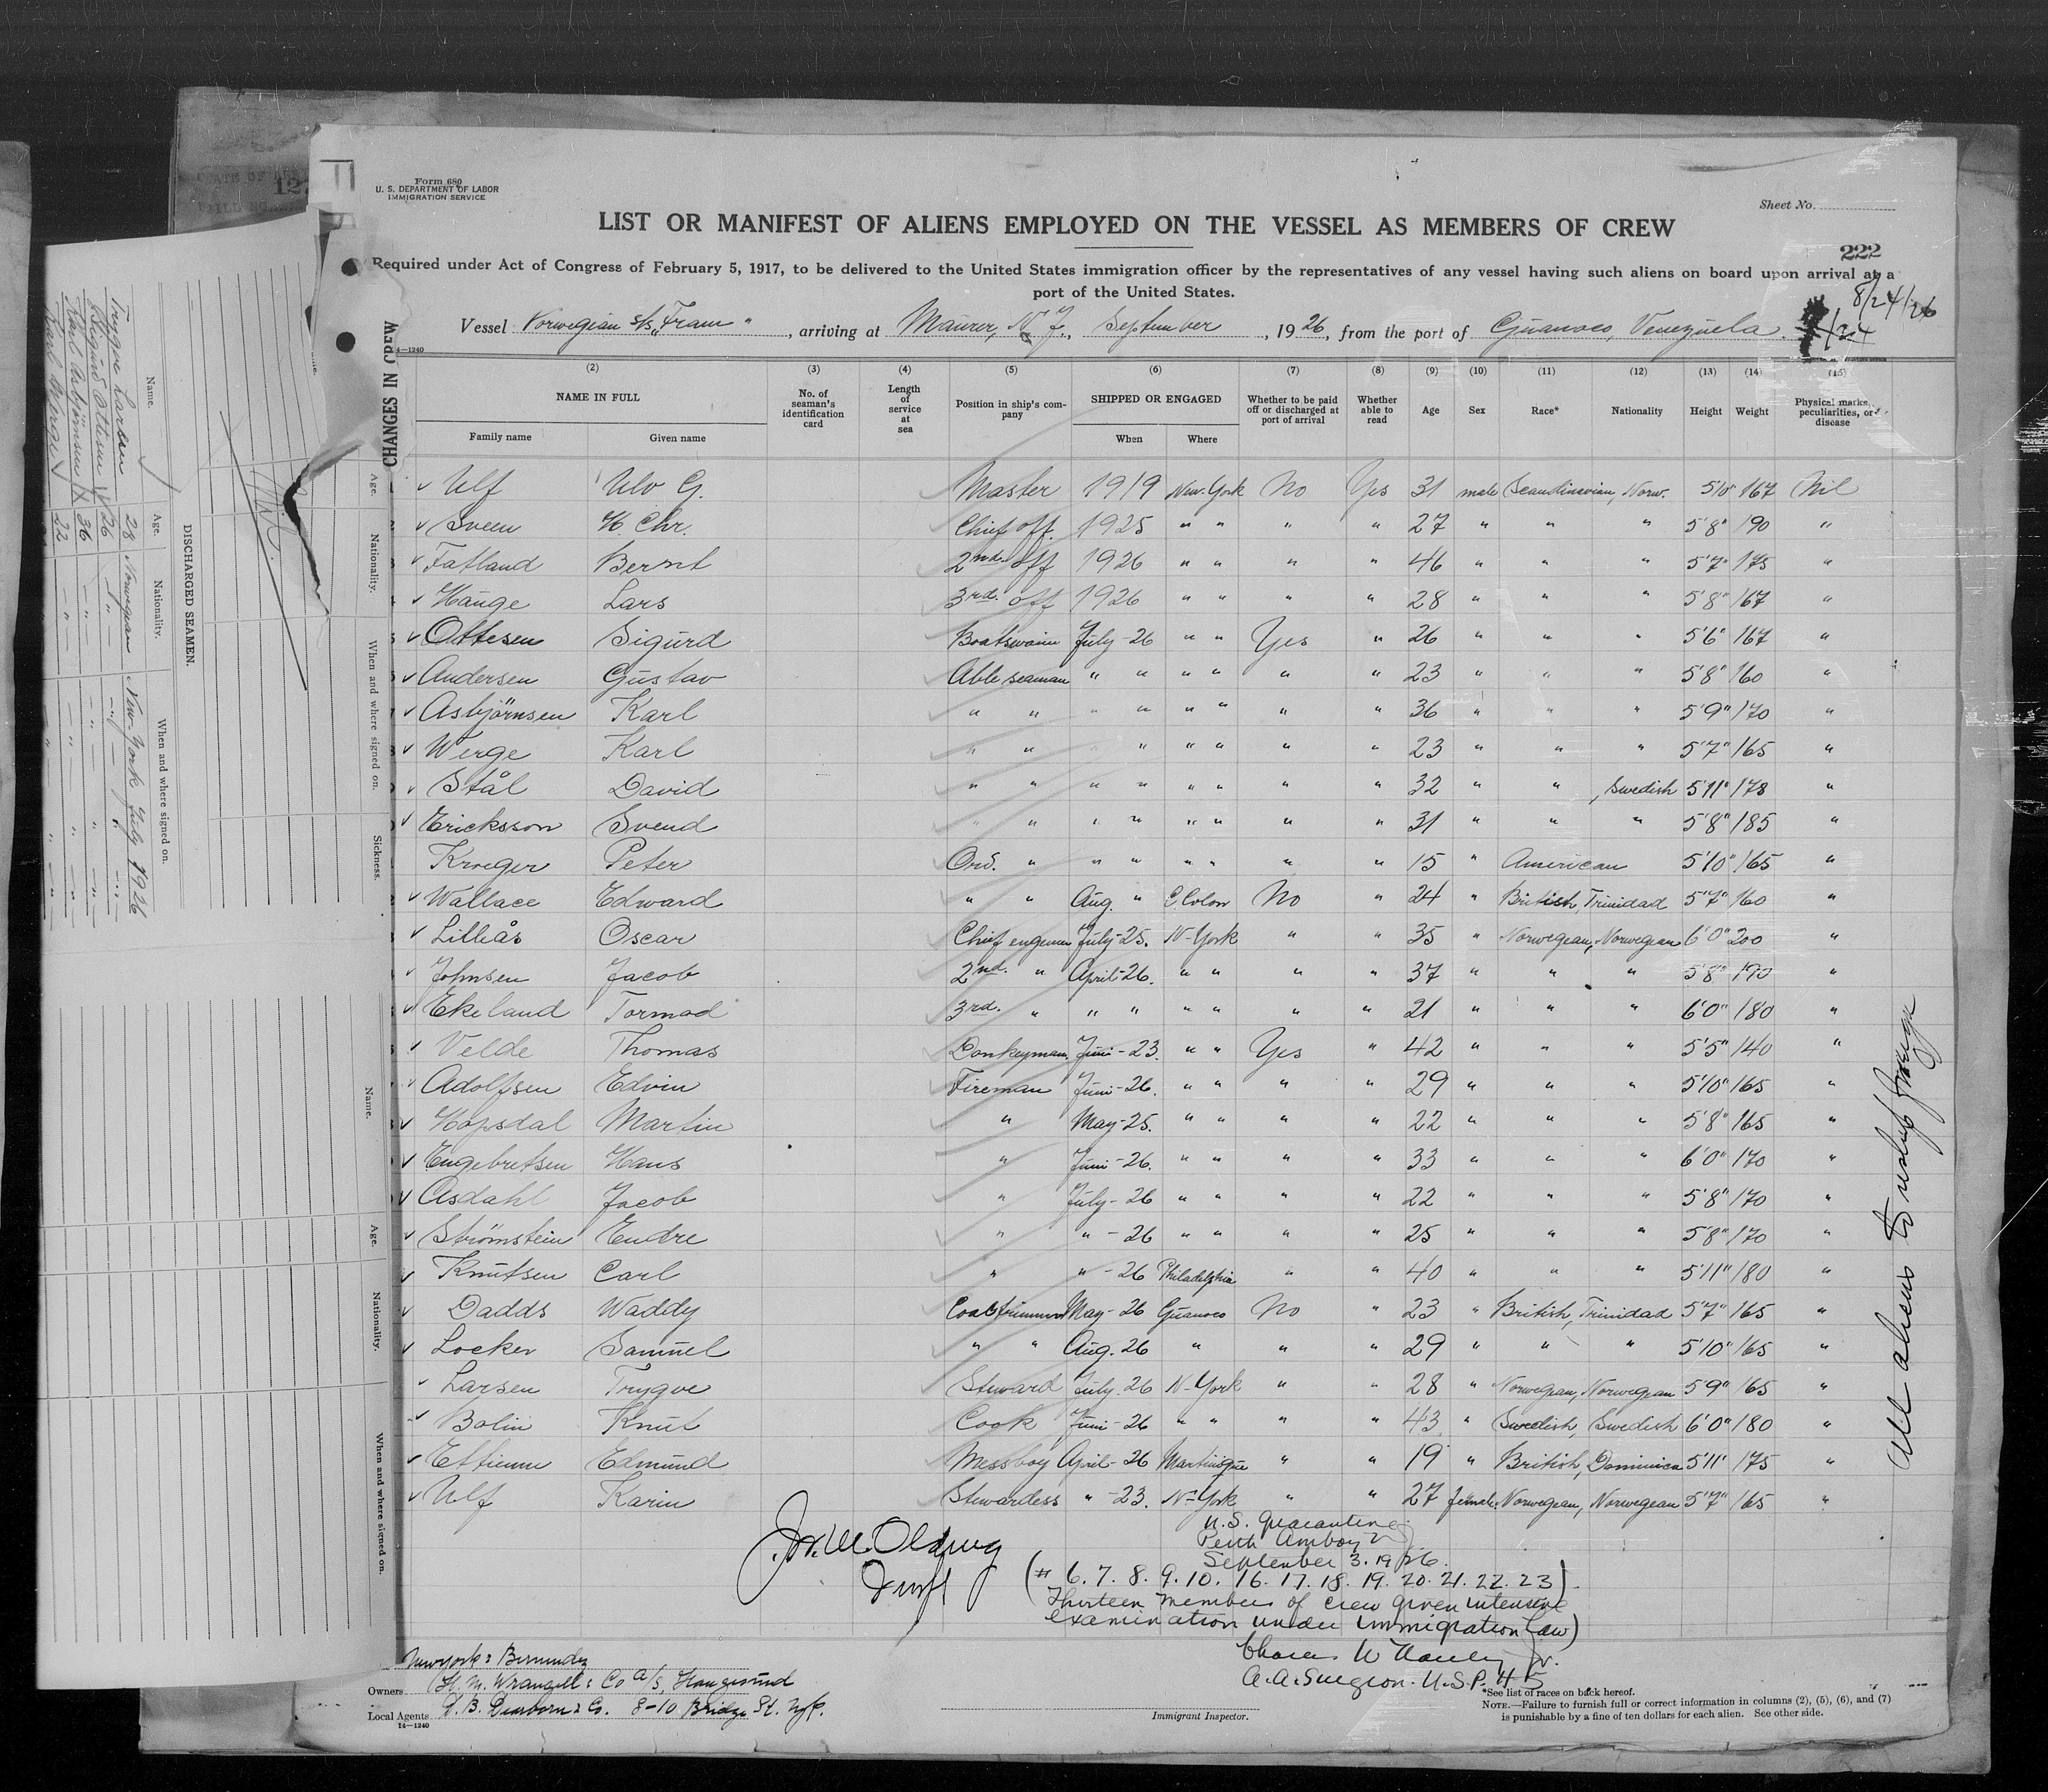 Form 680
U. S. DEPARTMENT OF LABOR
IMMIGRATION SERVICE
Sheet No.
LIST OR MANIFEST OF ALIENS EMPLOYED ON THE VESSEL AS MEMBERS OF CREW
222
Required under Act of Congress of February 5, 1917, to be delivered to the United States immigration officer by the representatives of any vessel having such aliens on board upon arrival at a
port of the United States.
8/24/26
Vessel Norwegian s/s "Fram", arriving at Maurer, N. J., September, 1926, from the port of Guanoco, Venezuela.
14—1240
CHANGES IN CREW
(2) (3) (4) (5) (6) (7) (8) (9) (10) (11) (12) (13) (14) (15)
NAME IN FULL No. of seaman's identification card Length of service at sea Position in ship's company SHIPPED OR ENGAGED Whether to be paid off or discharged at port of arrival Whether able to read Age Sex Race* Nationality Height Weight Physical marks, peculiarities, or disease
Family name Given name When Where
Ulf Ulv G. Master 1919 New York No Yes 31 male Scandinavian, Norw. 5'10" 167 Nil
Sveen H. Chr. Chief off. 1925 " " " " 27 " " " 5'8" 190 "
Fatland Bernt 2nd. off 1926 " " " " 46 " " " 5'7" 175 "
Hauge Lars 3rd. off 1926 " " " " 28 " " " 5'8" 167 "
Ottesen Sigurd Boatswain July-26 " " Yes " 26 " " " 5'6" 167 "
Andersen Gustav Able seaman " " " " " " 23 " " " 5'8" 160 "
Asbjörnsen Karl " " " " " " " " 36 " " " 5'9" 170 "
Werge Karl " " " " " " " " 23 " " " 5'7" 165 "
Stål David " " " " " " " " 32 " " , Swedish 5'11" 178 "
Ericksson Svend " " " " " " " " 31 " " " 5'8" 185 "
Kroeger Peter Ord. " " " " " " " 15 " American 5'10" 165 "
Wallace Edward " " Aug. " C. Colon No " 24 " British, Trinidad 5'7" 160 "
Lilleås Oscar Chief engeneer July-25. N-York " " 35 " Norwegian, Norwegian 6'0" 200 "
Johnsen Jacob 2nd. " April-26. " " " " 37 " " " 5'8" 190 "
Ekeland Tormod 3rd. " " " " " " " 21 " " " 6'0" 180 "
Velde Thomas Donkeyman. Juni-23. " " Yes " 42 " " " 5'5" 140 "
Adolfsen Edvin Fireman Juni-26. " " " " 29 " " " 5'10" 165 "
Hopsdal Martin " May-25. " " " " 22 " " " 5'8" 165 "
Engebretsen Hans " Juni-26. " " " " 33 " " " 6'0" 170 "
Asdahl Jacob " July-26 " " " " 22 " " " 5'8" 170 "
Strømstein Endre " " -26 " " " " 25 " " " 5'8" 170 "
Knutsen Carl " " -26 Philadelphia " " 40 " " " 5'11" 180 "
Dadds Waddy Coaltrimmer May-26 Guanoco No " 23 " British, Trinidad 5'7" 165 "
Locker Samuel " " Aug. 26 " " " 29 " " " 5'10" 165 "
Larsen Trygve Steward July. 26 N-York " " 28 " Norwegian, Norwegian 5'9" 165 "
Bolin Knut Cook Juni-26 " " " " 43 " Swedish, Swedish 6'0" 180 "
Ettienne Edmund Messboy April-26 Martinique " " 19 " British, Dominica 5'11" 175 "
Ulf Karin Stewardess " -23. N-York " " 27 female. Norwegian, Norwegian 5'7" 165 "
U.S. Quarantine
Perth Amboy
September 3. 1926.
(# 6. 7. 8. 9. 10. 16. 17. 18. 19. 20. 21. 22. 23).
Thirteen members of crew given intensive
examination under immigration law)
A. A. Surgeon. U.S.P.H.S
All aliens to reship foreign
New York & Bermudez
Owners H. M. Wrangell & Co a/s, Haugesund
Local Agents D. B. Dearborn & Co. 8-10 Bridge St. N.Y.
14—1240
Immigrant Inspector.
*See list of races on back hereof.
NOTE.—Failure to furnish full or correct information in columns (2), (5), (6), and (7)
is punishable by a fine of ten dollars for each alien. See other side.
DISCHARGED SEAMEN.
Name. Age. Nationality. When and where signed on.
Trygve Larsen 28 Norwegian New-York July 1926
Sigurd Ottesen 26 " "
Karl Asbjörnsen 36 " "
Karl Werge 22 " "
Age. Nationality. When and where signed on. Sickness.
Name. Age. Nationality. When and where signed on.